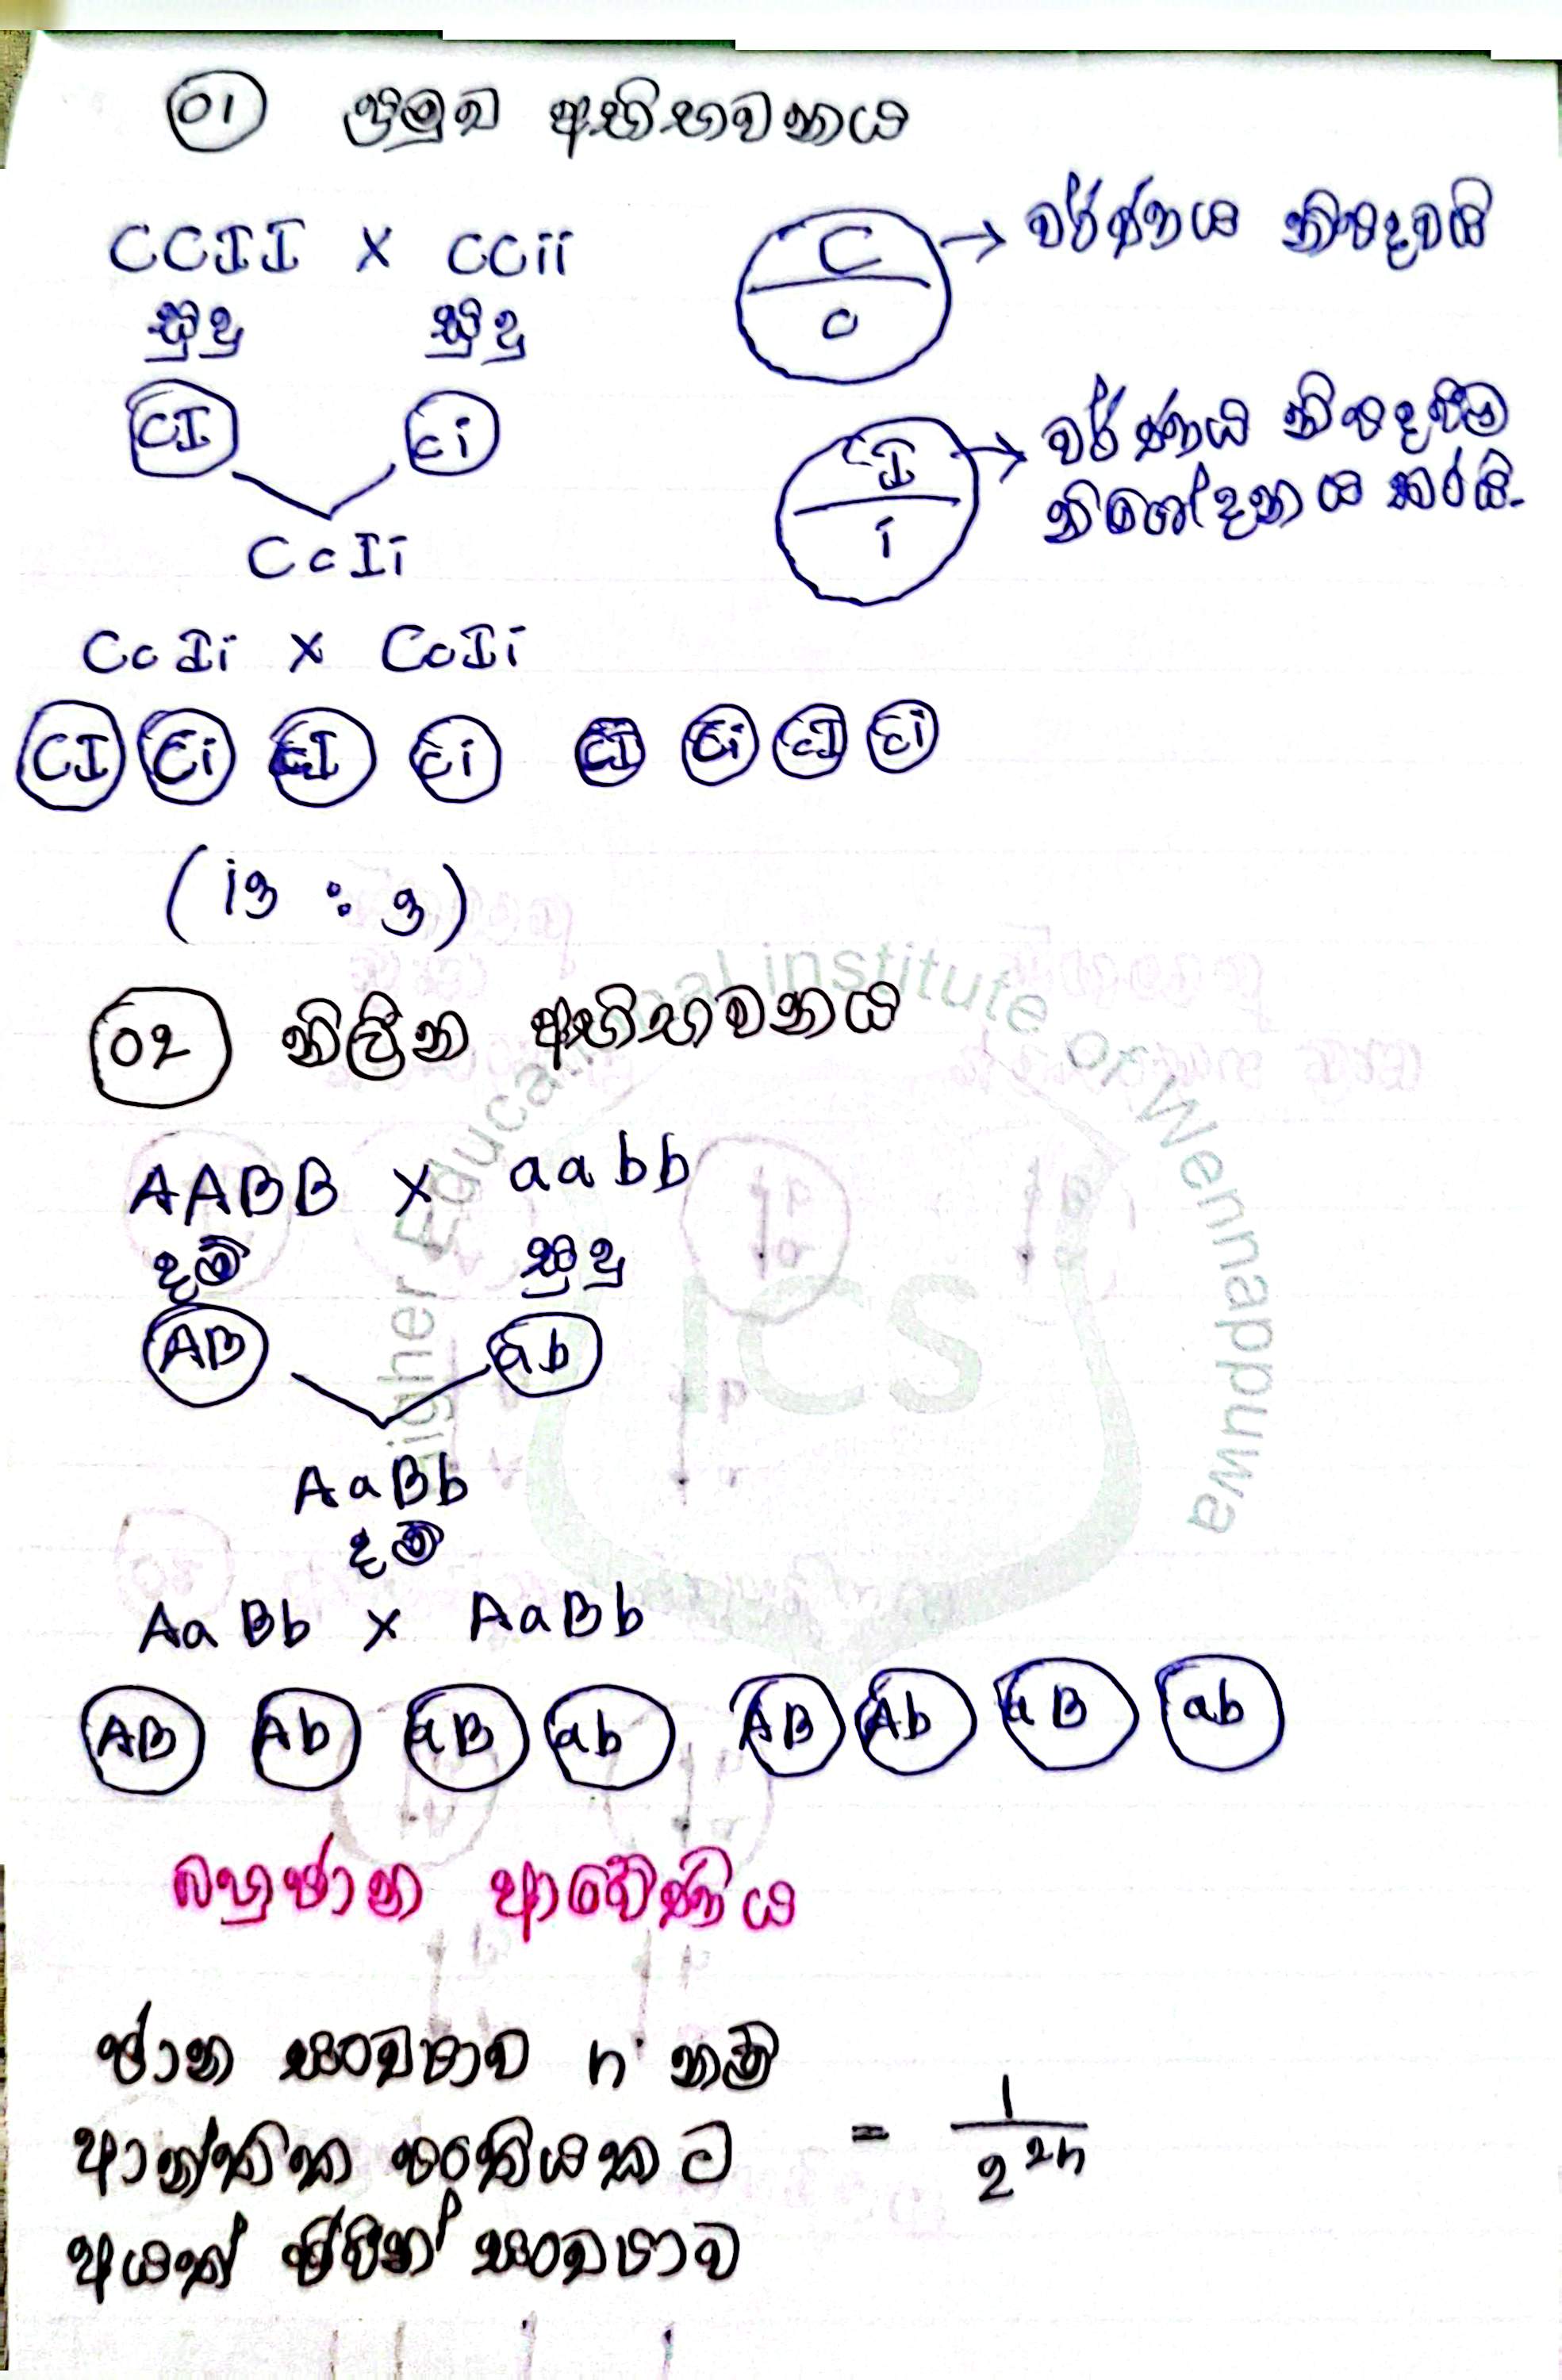 01 ප්‍රමුඛ අභිභවනය
CCII X ccii
සුදු සුදු
C
c
→ වර්ණය නිපදවයි
CI ci
I
i
→ වර්ණය නිපදවීම
නිශේදනය කරයි.
CcIi
CcIi X CcIi
CI Ci cI ci CI Ci cI ci
(13 : 3)
02 නිලීන අභිභවනය
AABB X aabb
දම් සුදු
AB ab
AaBb
දම්
AaBb X AaBb
AB Ab aB ab AB Ab aB ab
බහුජාන ආවේණිය
ජාන සංඛ්‍යාව n නම්
ආන්තික පංතියකට
අයත් ජීවීන් සංඛ්‍යාව
= 1
2^2n
Higher Educational institute of Wennappuwa
ICS